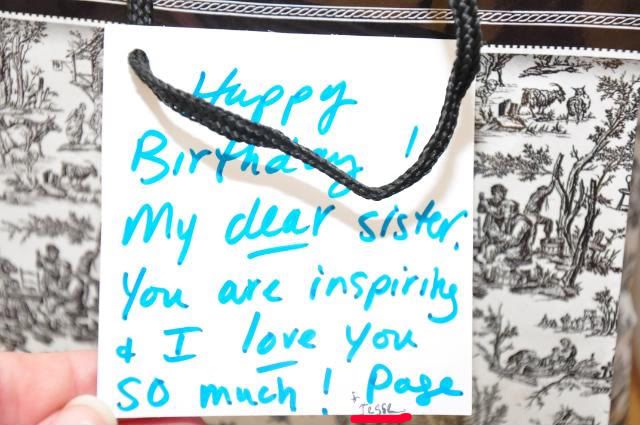 Happy
Birthday!
My dear sister.
You are inspiring
& I love you
so much! Page
+ Jesse